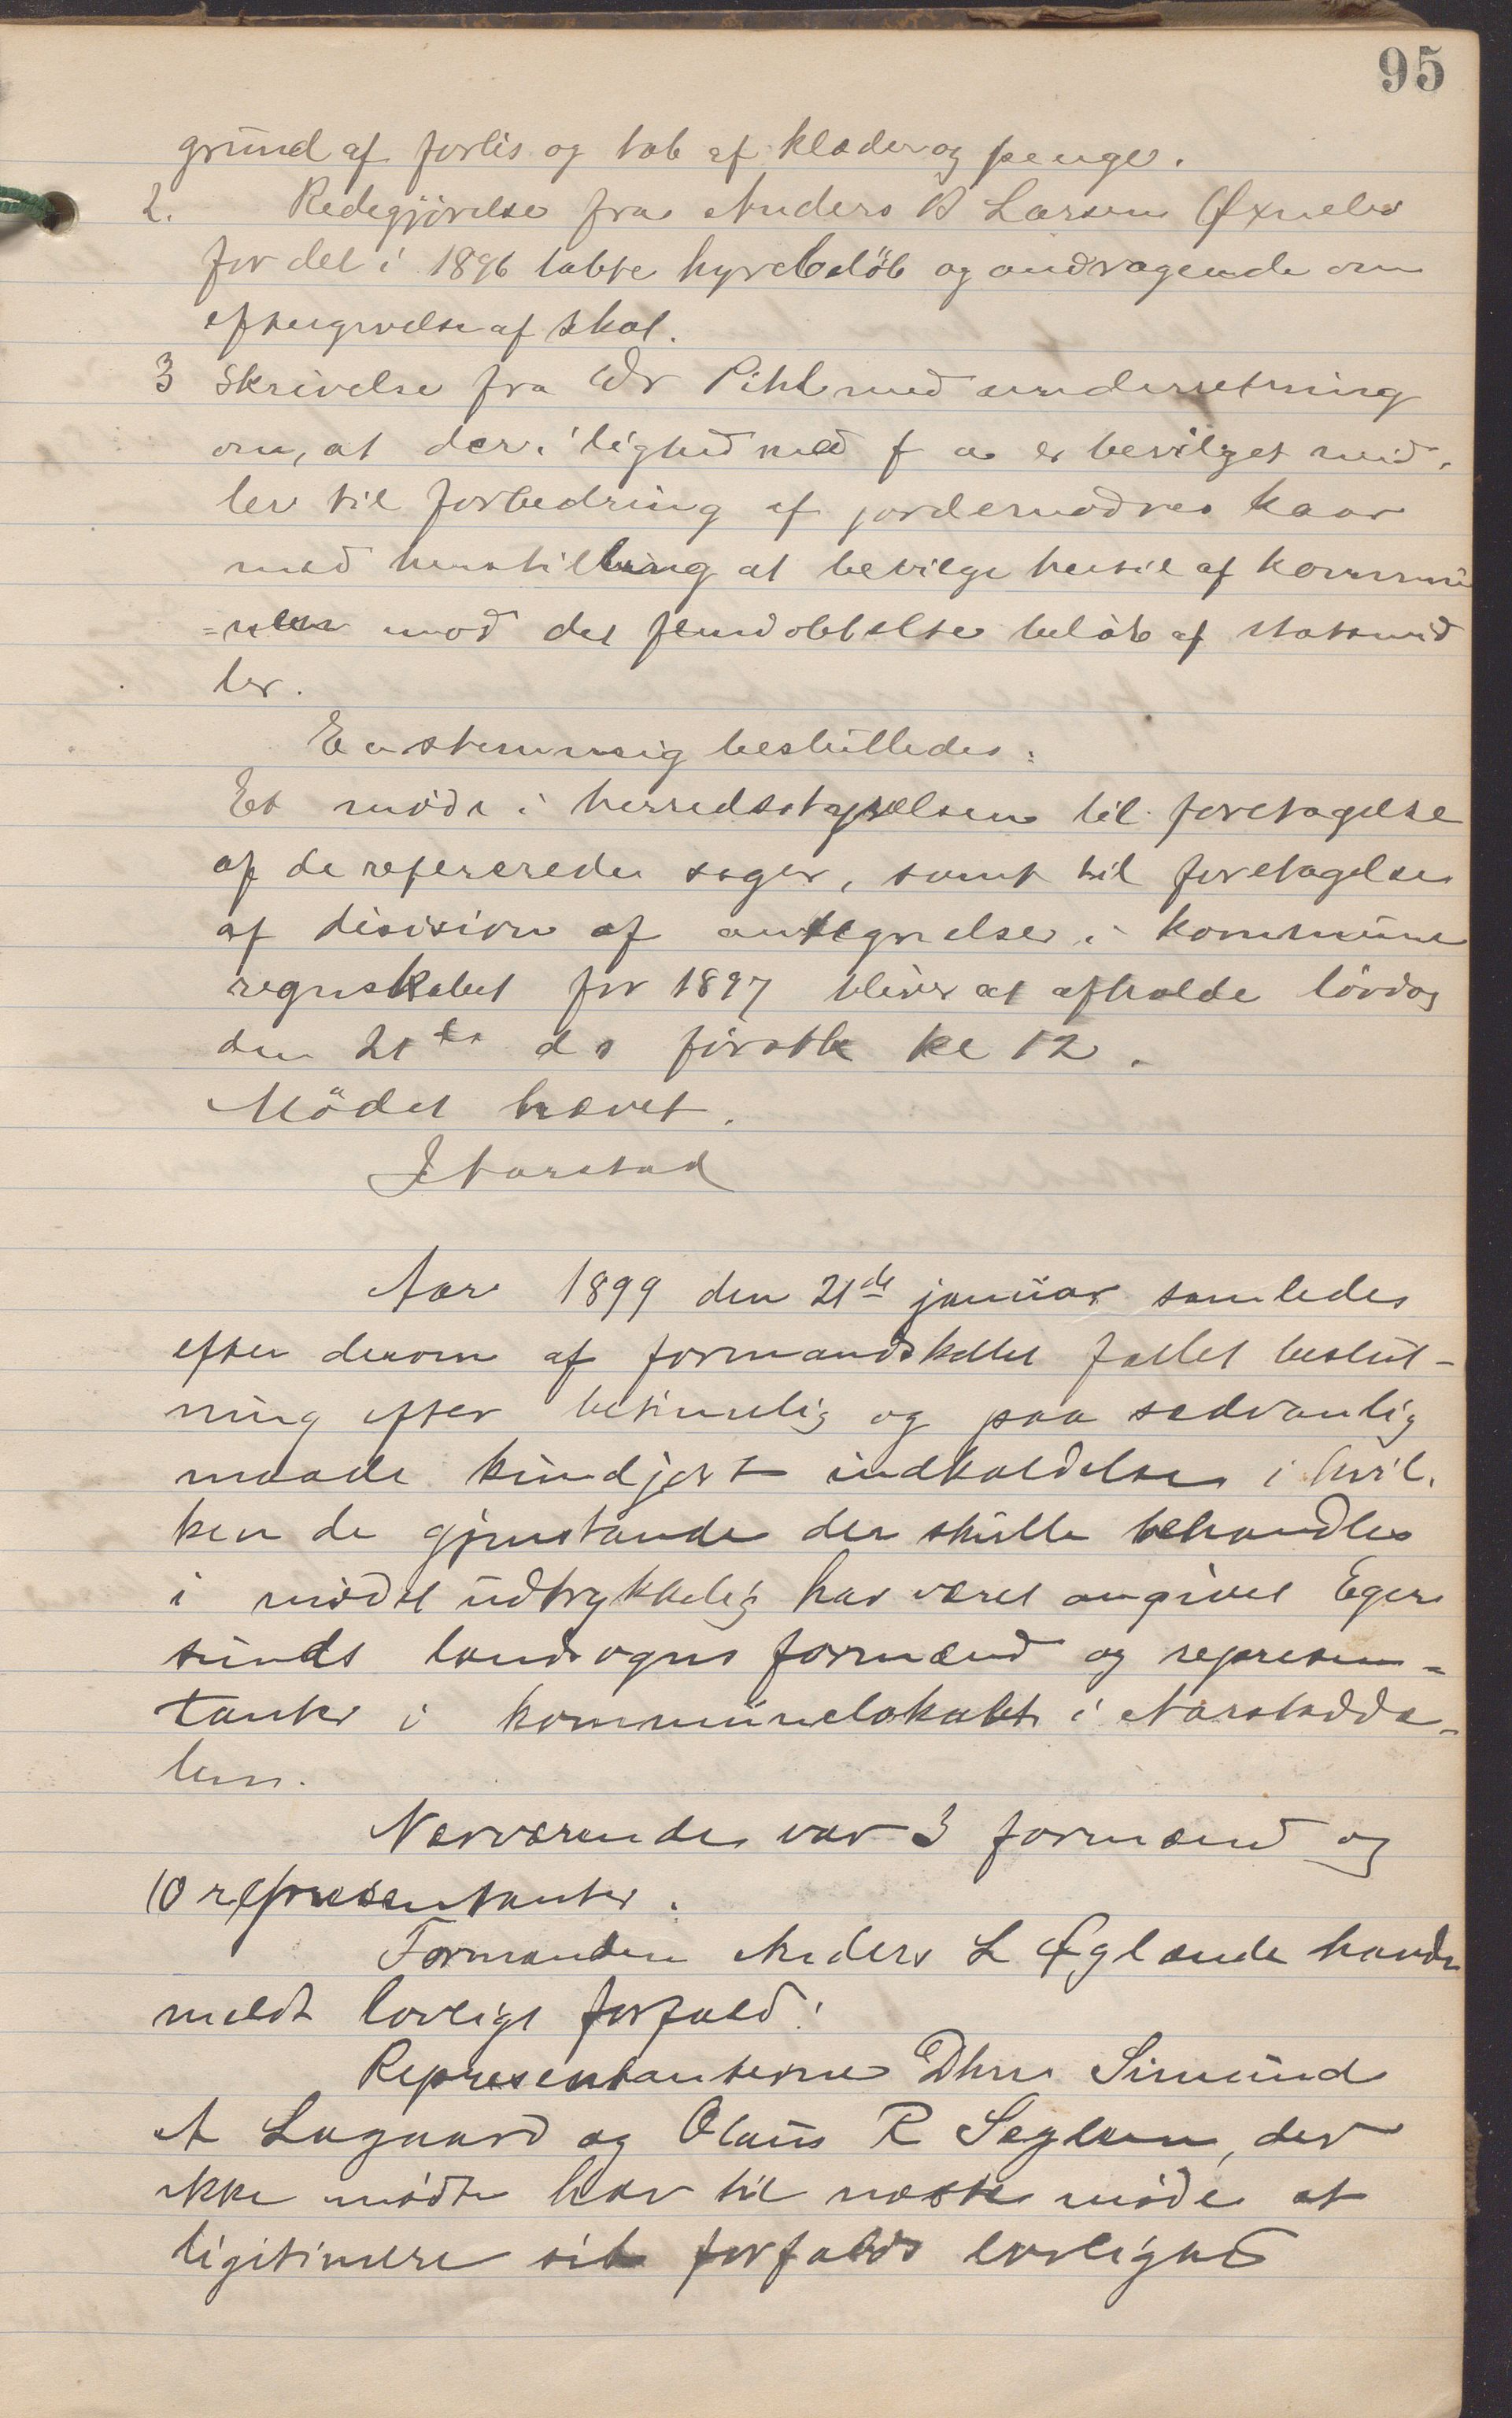 95
grund af forlis og tab af klæder og penge.
2. Redegjörelse fra Anders B Larsen Øxnebø
for det i 1896 tabte hyrebeløb og andragende om
eftergivelse af skat.
3 Skrivelse fra Dr Pihl med underretning
om, at der i lighed med f a er bevilget mid-
ler til forbedring af jordemødres kaar
med henstilling at bevilge hertil af kommu
=nen mod det femdobbelte beløb af statsmid
ler.
Enstemmig besluttedes:
Et møde i herredsstyrelsen til foretagelse
af de refererede sager, samt til foretagelse
af disision af antegnelser i kommune
regnskabet for 1897 bliver at afholde lørdag
den 21de ds förstk kl 12.
Mödet hævet.
J Aarstad
Aar 1899 den 21de januar samledes
efter derom af formandskabet fattet beslut-
ning efter betimelig og paa sædvanlig
maade kundgjort indkaldelse i hvil-
ken de gjenstande der skulle behandles
i mødet udtrykkelig har været angivet Eger
sunds landsogns formænd og represen=
tanter i kommunelokalet i Aarstadda-
len.
Nærværende var 3 formænd og
10 representanter.
Formanden Anders L Øglænde havde
meldt lovligt forfald.
Representanterne Dhrr Simund
A Lagaard og Olaus R Seglem, der
ikke mødte har til næste møde at
ligitimere sit forfalds lovlighed